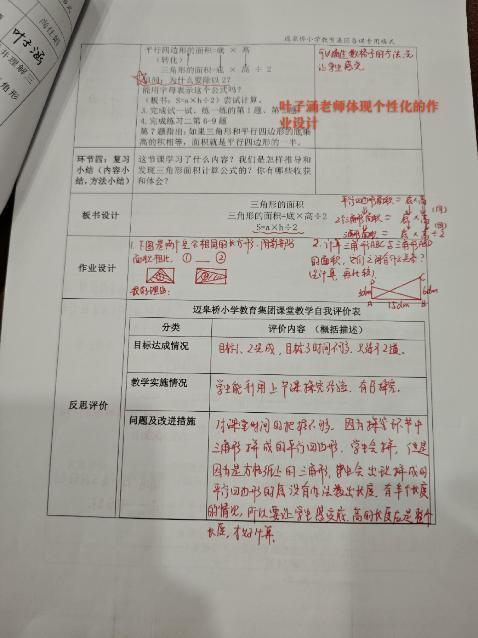 迈皋桥小学教育集团备课专用格式
叶子涵
平行四边形的面积=底 × 高
（转化）
三角形的面积=底 × 高 ÷ 2
追问：为什么要除以2？
能用字母表示这个公式吗？
（板书：S=a×h÷2）尝试计算。
3.完成试一试、练一练的第1题、第
4.完成练习二第6-9题
第7题指出：如果三角形和平行四边形的底乘
高的积相等，面积就是平行四边形的一半。
叶子涵老师体现个性化的作
业设计
环节四：复习
小结（内容小
结，方法小结）
这节课学习了什么内容？我们是怎样推导和
发现三角形面积计算公式的？你有哪些收获
和体会？
板书设计
三角形的面积
三角形的面积=底×高÷2
S=a×h÷2
平行四边形面积=底×高
2个三角形面积=底×高
三角形面积=底×高÷2
作业设计
1.下图是两个完全相同的长方形，阴影部分
面积相比，①__②
我的理由：
2.计算三角形ABC与三角形ABD
的面积，它们之间有什么关系？
先计算，再比较
15cm
A
B
C
D
迈皋桥小学教育集团课堂教学自我评价表
分类
评价内容 （概括描述）
反思评价
目标达成情况
目标1、2完成，目标3时间不够，只练了2道。
教学实施情况
学生能利用上节课探究经验，有序探究。
问题及改进措施
对课堂时间的把握不够。因为探究环节中
三角形拼成的平行四边形，学生会拼，但是
因为是方格纸上的三角形，拼出的
平行四边形的底没有办法数出长度，有半个长度
的情况，所以要让学生感受底、高的长度应是整个
长度，才好计算。